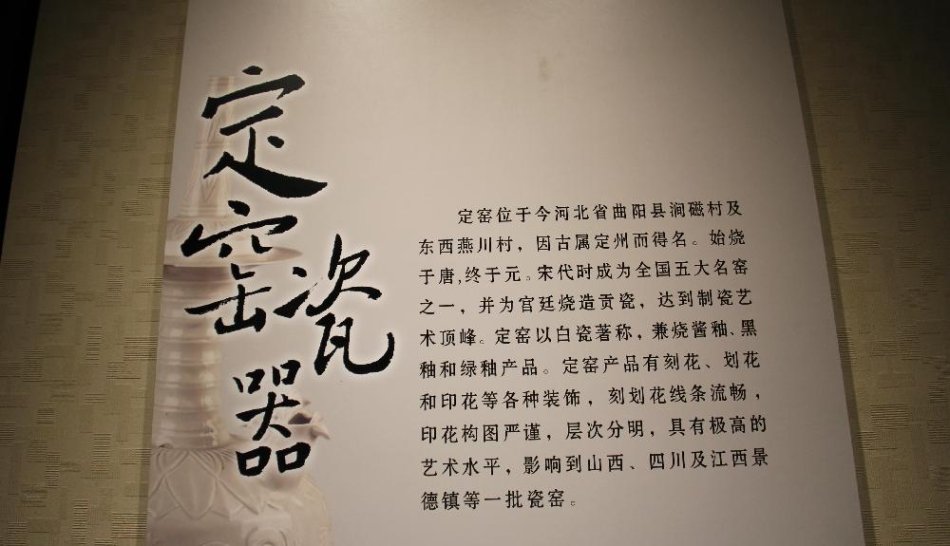 定窑瓷器
定窑位于今河北省曲阳县涧磁村及
东西燕川村，因古属定州而得名。始烧
于唐,终于元。宋代时成为全国五大名窑
之一，并为宫廷烧造贡瓷，达到制瓷艺
术顶峰。定窑以白瓷著称，兼烧酱釉、黑
釉和绿釉产品。定窑产品有刻花、划花
和印花等各种装饰，刻划花线条流畅，
印花构图严谨，层次分明，具有极高的
艺术水平，影响到山西、四川及江西景
德镇等一批瓷窑。